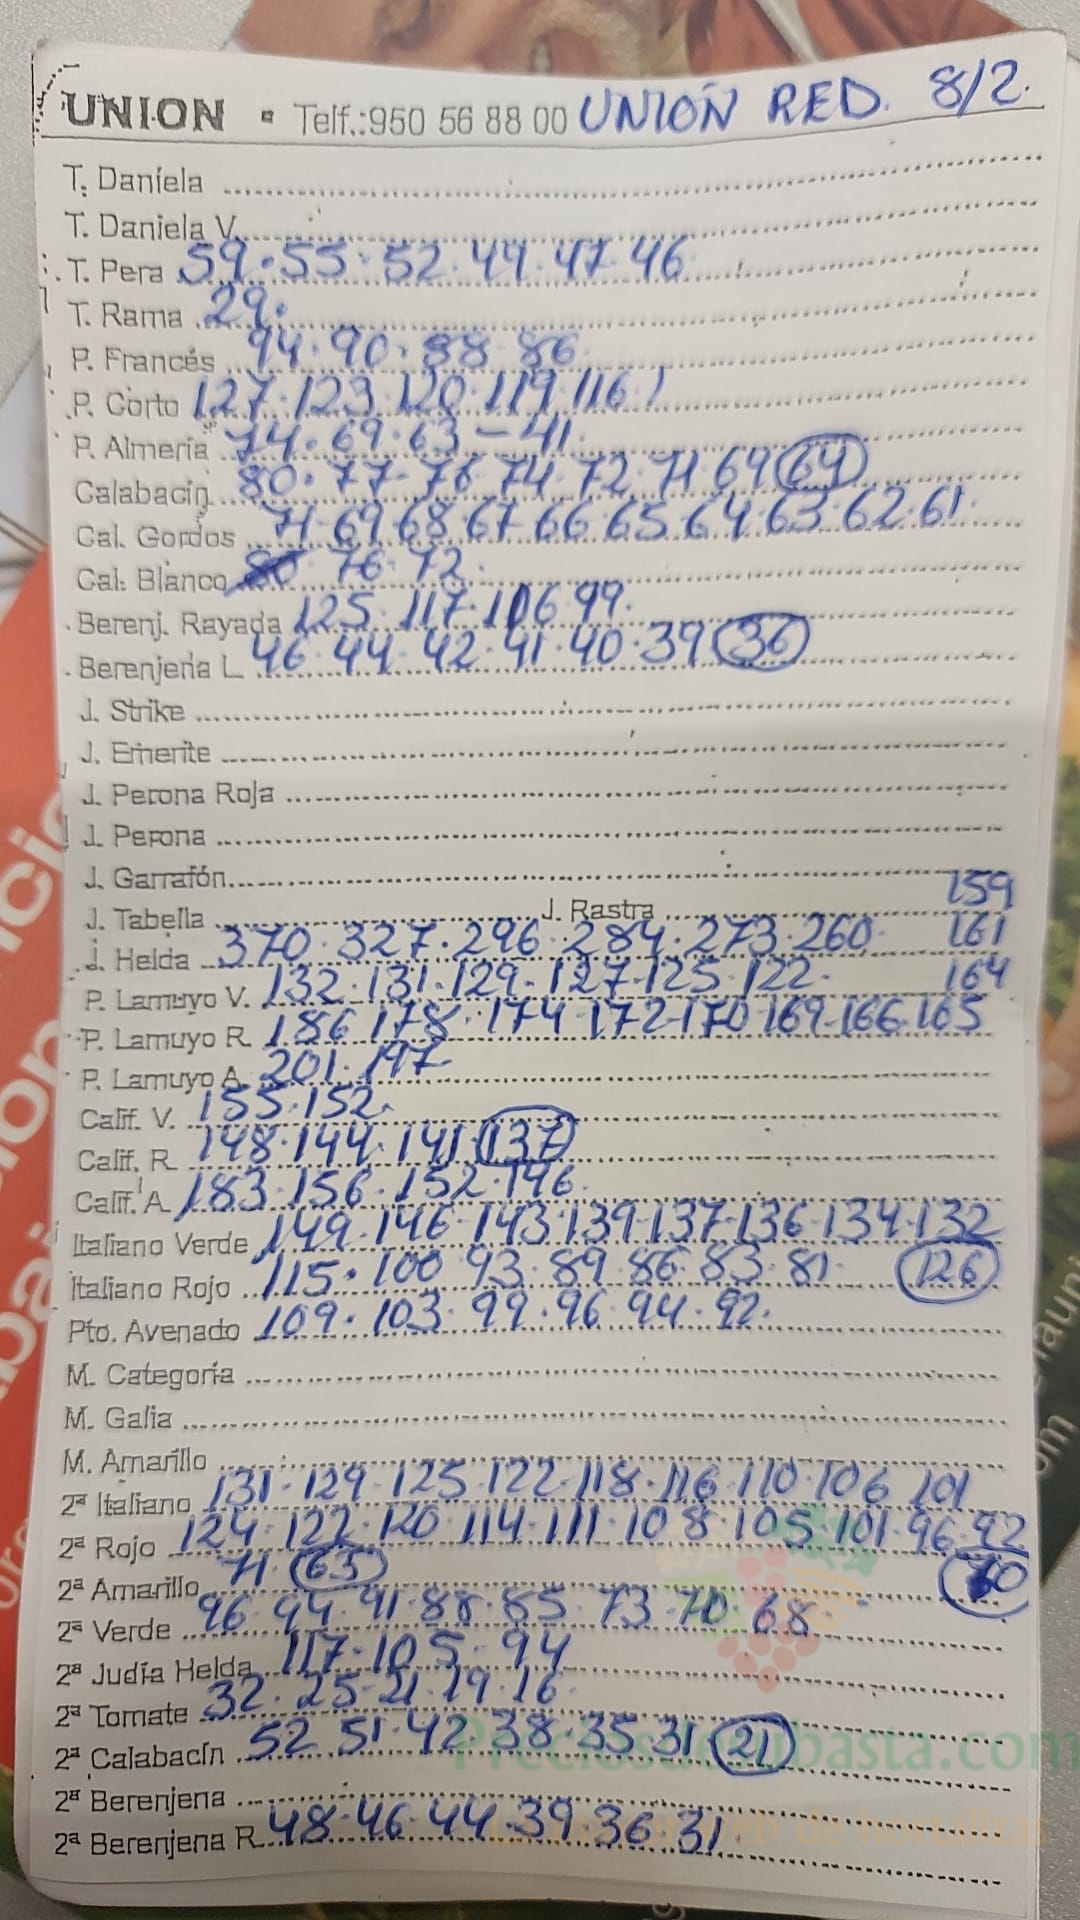 UNION ▪ Telf.:950 56 88 00 UNIÓN RED. 8/2.
T. Daniela
T. Daniela V.
T. Pera 59·55·52·49·47·46
T. Rama 29.
P. Francés 94·90·88·86
P. Corto 127·123·120·119·116
P. Almeria 74·69·63-41
Calabacin 80·77·76·74·72·71·69 64
Cal. Gordos 71·69·68·67·66·65·64·63·62·61
Cal. Blanco 80 76·72
Berenj. Rayada 125·117·106·99.
Berenjena L 46·44·42·41·40·39 36
J. Strike
J. Emerite
J. Perona Roja
J. Perona
J. Garrafón 159
J. Tabella J. Rastra 161
J. Helda 370·327·296·284·273·260
P. Lamuyo V. 132·131·129·127·125·122 164
P. Lamuyo R 186·178·174·172·170·169·166·165
P. Lamuyo A 201·197
Calif. V. 155·152
Calif. R 148·144·141 137
Calif. A 183·156·152·146
Italiano Verde 149·146·143·139·137·136·134·132
Italiano Rojo 115·100·93·89·86·83·81 126
Pto. Avenado 109·103·99·96·94·92.
M. Categoría
M. Galia
M. Amarillo
2ª Italiano 131·129·125·122·118·116·110·106·101
2ª Rojo 124·122·120·114·111·108·105·101·96·92
2ª Amarillo 71 65
2ª Verde 96·94·91·88·85·73·70·68
2ª Judía Helda 117·105·94
2ª Tomate 32·25·21·19·16
2ª Calabacín 52·51·42·38·35·31 21
2ª Berenjena
2ª Berenjena R 48·46·44·39·36·31